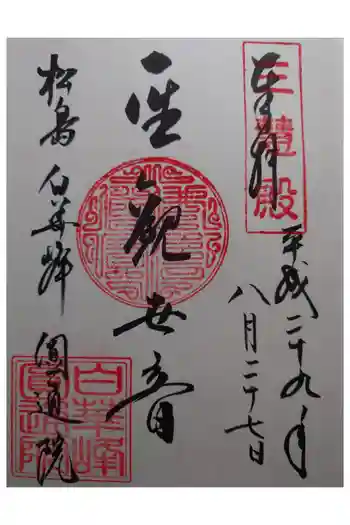 奉拝
三慧殿
平成二十九年
八月二十七日
聖観世音
松島 白華峰 圓通院
白華峰
圓通院